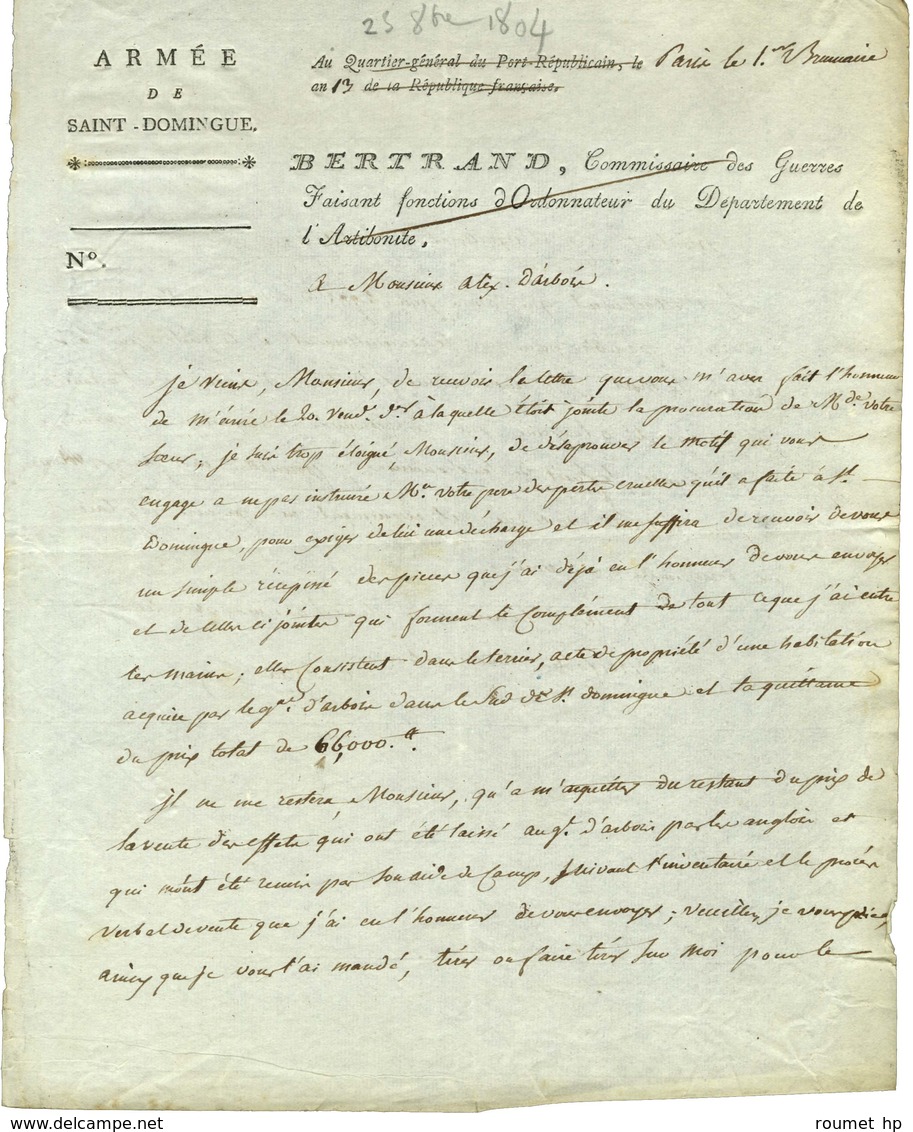 25 8bre 1804
ARMÉE
DE
SAINT-DOMINGUE.
Au Quartier-général du Port-Républicain, le Paris le 1.er Brumaire
an 13 de la République française.
BERTRAND, Commissaire des Guerres
Faisant fonctions d'Ordonnateur du Département de
l'Artibonite,
N°.
a Monsieur alex. Darbois.
je viens, Monsieur, de recevoir la lettre que vous m'avez fait l'honneur
de m'écrire le 20. vend.re d.er à laquelle étoit jointe la procuration de M.de votre
sœur; je suis trop éloigné, Monsieur, de désaprouver le motif qui vous
engage a ne pas instruire M.r votre pere des pertes cruelles qu'il a faite à S.t
Domingue, pour exiger de lui une décharge et il me suffira de recevoir de vous
un simple récépissé des pieces que j'ai déjà eu l'honneur de vous envoyer
et de celles ci jointes qui forment le Complément de tout ce que j'ai entre
les mains; elles Consistent dans le dernier, acte de propriété d'une habitation
acquise par le g.al d'arbois dans le Sud de S.t domingue et la quittance
du prix total de 66,000.tt
jl ne me restera, Monsieur, qu'a m'aquitter du restant du prix de
la vente des effets qui ont été laissé au g.l d'arbois par les anglois et
qui m'ont été remis par son aide de Camp, suivant l'inventaire et le procès
verbal de vente que j'ai eu l'honneur de vous envoyer; veuillez, je vous prie,
ainsy que je vous l'ai mandé, tirer ou faire tirer sur moi pour le
roumet hp